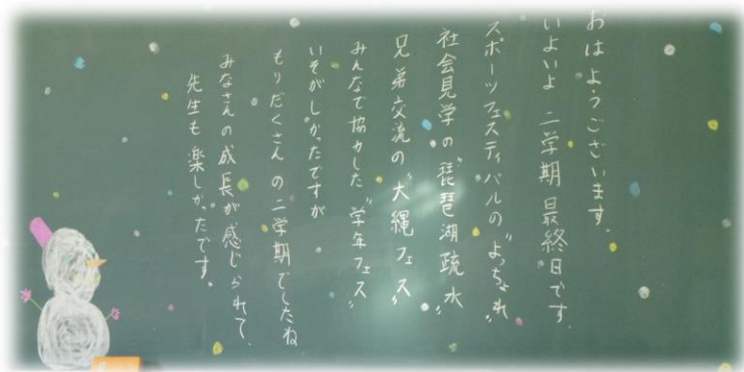 おはようございます。
いよいよ 二学期 最終日です。
スポーツフェスティバルの〝よっちょれ〟
社会見学の〝琵琶湖疏水〟
兄弟交流の〝大縄フェス〟
みんなで協力した〝学年フェス〟
いそがしかったですが
もりだくさんの二学期でしたね
みなさんの成長が感じられて、
先生も楽しかったです。